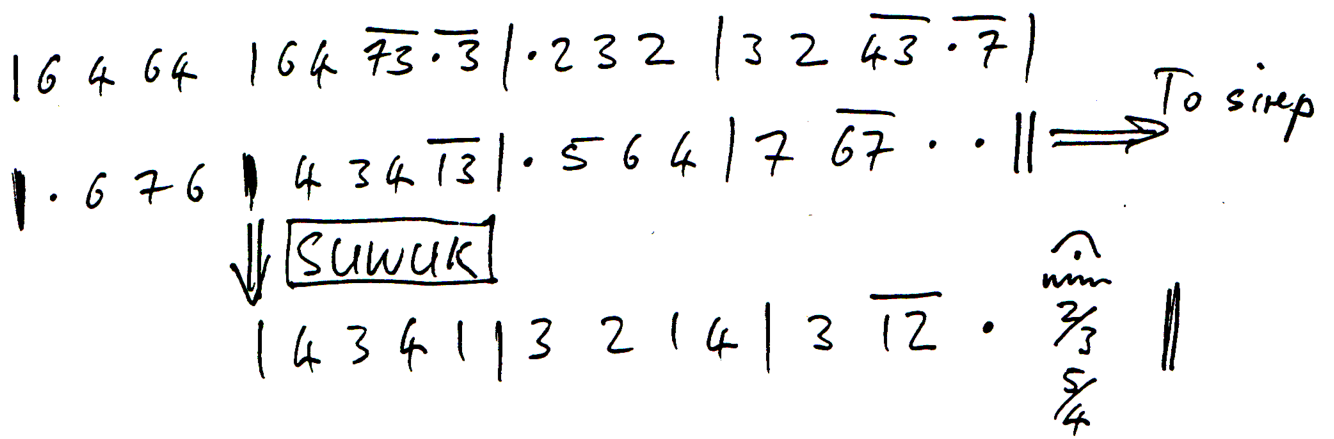 |6 4 64 |64 7̅3̅.̅3̅|.232 |32 4̅3̅ .̅7̅|
|.676| 434 1̅3̅|.564|7 6̅7̅ . . || ⟹ To sirep
⇓ SUWUK
|4341|3214|3 1̅2̅ . 2/3 ||
5/4